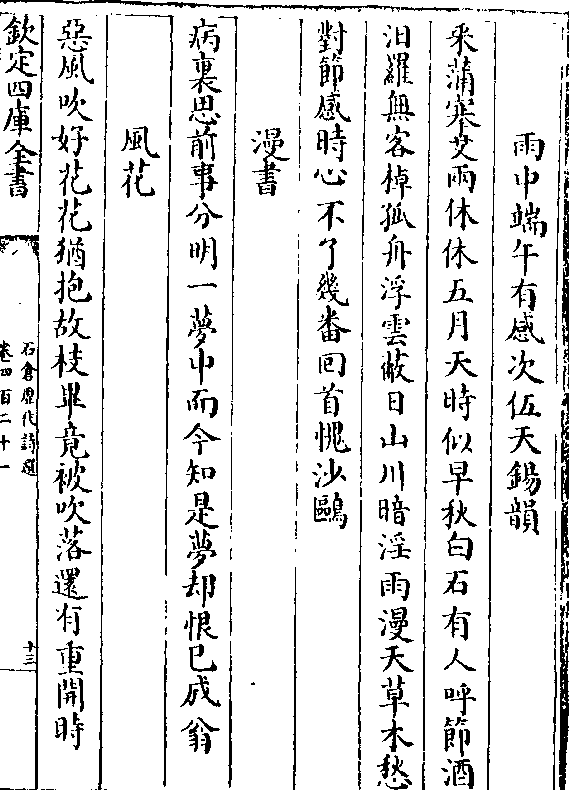 雨中端午有感次伍天錫韻
采蒲寒艾雨休休五月天時似早秋白石有人呼節酒
汨羅無客棹孤舟浮雲蔽日山川暗淫雨漫天草木愁
對節感時心不了幾番回首愧沙鷗
漫書
病裏思前事分明一夢中而今知是夢却恨已成翁
風花
惡風吹好花花猶抱故枝畢竟被吹落還有重開時
欽定四庫全書
石倉歷代詩選
卷四百二十一
十三